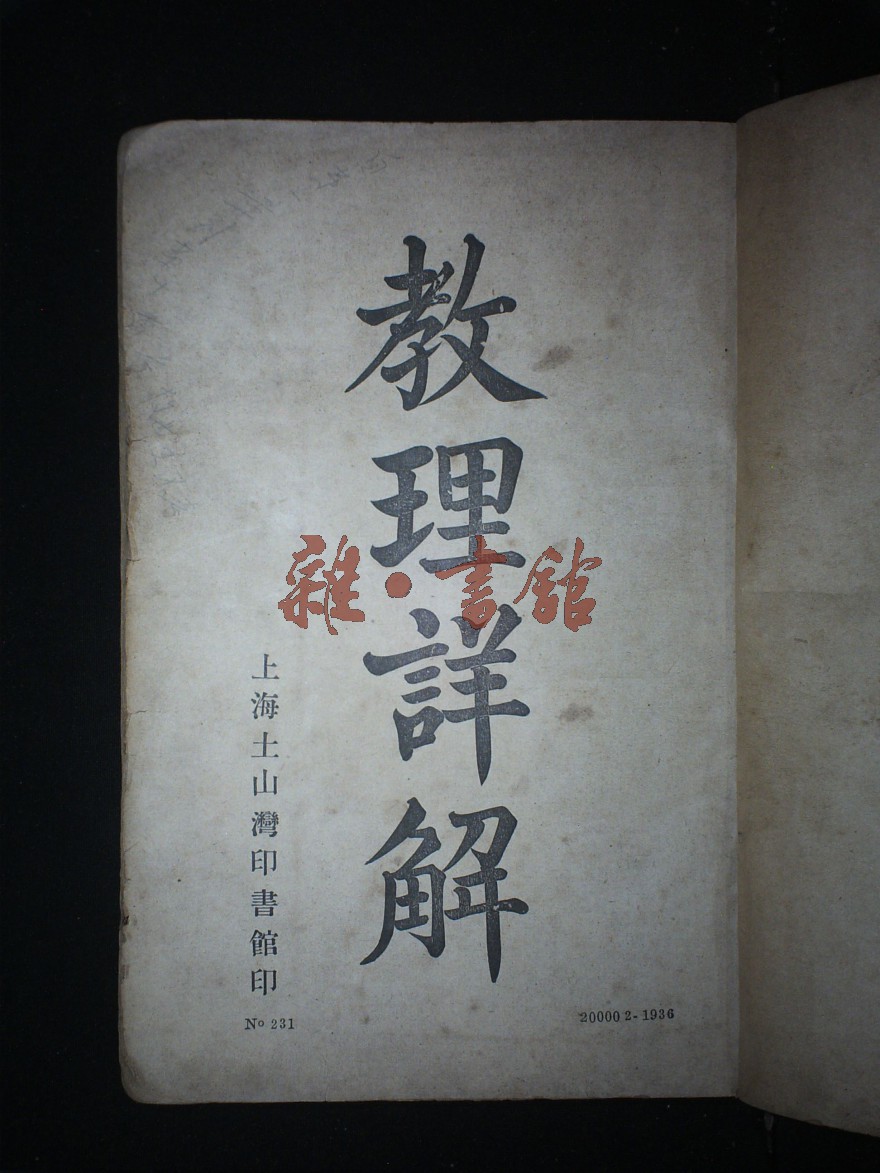 教理詳解
雜·書館
上海土山灣印書館印
Nº 231
20000 2-1936